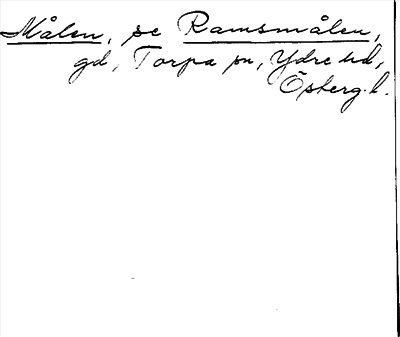 Målen, se Ramsmålen,
gd, Torpa sn, Ydre hd,
Österg. l.